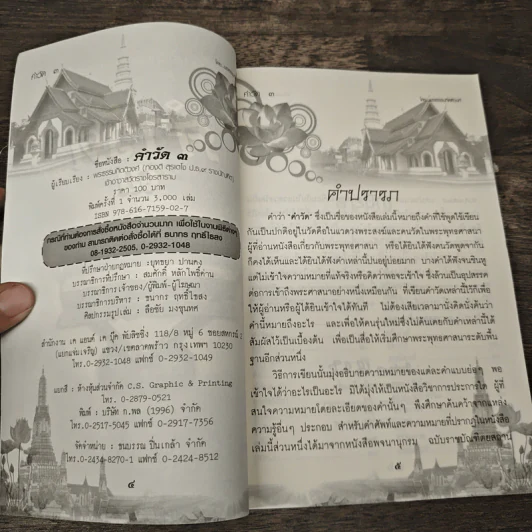 คำวัด ๓
ชื่อหนังสือ : คำวัด ๓
ผู้เรียบเรียง : พระธรรมกิตติวงศ์ (ทองดี สุรเตโช ป.ธ.๙ ราชบัณฑิต)
เจ้าอาวาสวัดราชโอรสาราม
ราคา 100 บาท
พิมพ์ครั้งที่ 1 จำนวน 3,000 เล่ม
ISBN 978-616-7159-02-7
กรณีที่ท่านต้องการสั่งซื้อหนังสือจำนวนมาก เพื่อใช้ในงานพิธีต่างๆ
ของท่าน สามารถติดต่อสั่งซื้อได้ที่ ธนากร ฤทธิ์ไธสง
08-1932-2505, 0-2932-1048
ที่ปรึกษาฝ่ายกฎหมาย : ยุทธยา ปานคง
บรรณาธิการที่ปรึกษา : สมศักดิ์ หลักไพรีค้าน
บรรณาธิการ เจ้าของ/ผู้พิมพ์-ผู้โฆษณา
บรรณาธิการบริหาร : ธนากร ฤทธิ์ไธสง
ศิลปกรรมรูปเล่ม : ลือชัย มงขุนทด
สำนักงาน เค แอนด์ เค บุ๊ค พับลิชชิ่ง 118/8 หมู่ 6 ซอยสตกรณ์
(แยกแจ่มเจริญ) แขวง/เขตลาดพร้าว กรุงเทพฯ 10230
โทร.0-2932-1048 แฟกซ์ 0-2932-1049
แยกสี : ห้างหุ้นส่วนจำกัด C.S. Graphic & Printing
โทร. 0-2879-0521
พิมพ์ : บริษัท ก.พล (1996) จำกัด
โทร.0-2517-5045 แฟกซ์ 0-2917-7356
จัดจำหน่าย : ชนบรรณ ปิ่นเกล้า จำกัด
โทร.0-2434-8270-1 แฟกซ์ 0-2424-8512
๔
คำวัด ๓
คำปรารภ
คำว่า "คำวัด" ซึ่งเป็นชื่อของหนังสือเล่มนี้หมายถึงคำที่ใช้พูดใช้เขียน
กันเป็นปกติอยู่ในวัดคือในแวดวงพระสงฆ์และคนวัดในพระพุทธศาสนา
ผู้ที่อ่านหนังสือเกี่ยวกับพระพุทธศาสนา หรือได้ยินได้ฟังคนวัดพูดจากัน
ก็คงได้เห็นและได้ยินได้ฟังคำเหล่านี้บ่นอยู่บ่อยมาก บางคำได้ฟังจนชินหู
แต่ไม่เข้าใจความหมายที่แท้จริงหรือคิดว่าพอจะเข้าใจ ซึ่งล้วนเป็นอุปสรรค
ต่อการเข้าถึงพระศาสนาอย่างหนึ่งเหมือนกัน ที่เขียนคำวัดเหล่านี้ไว้ก็เพื่อ
ให้ผู้อ่านหรือผู้ได้ยินเข้าใจได้ทันที ไม่ต้องเสียเวลามานั่งคิดนั่งค้นว่า
คำนี้หมายถึงอะไร และเพื่อให้คนรุ่นใหม่ซึ่งไม่เดินเคยกับคำเหล่านี้ได้
สัมผัสไว้เป็นเบื้องต้น เพื่อเป็นสื่อให้เริ่มศึกษาพระศาสนาระดับพื้น
ฐานอีกส่วนหนึ่ง
วิธีการเขียนนั้นมุ่งอธิบายความหมายของแต่ละคำแบบย่อๆ พอ
เข้าใจได้ว่าอะไรเป็นอะไร มิได้มุ่งให้เป็นหนังสือวิชาการประการใด ผู้ที่
สนใจความหมายโดยละเอียดของคำนั้นๆ พึงศึกษาค้นคว้าจากแหล่ง
ความรู้อื่นๆ ประกอบ สำหรับคำศัพท์และความหมายที่ปรากฏในหนังสือ
เล่มนี้ส่วนหนึ่งได้มาจากหนังสือพจนานุกรม ฉบับราชบัณฑิตยสถาน
๕